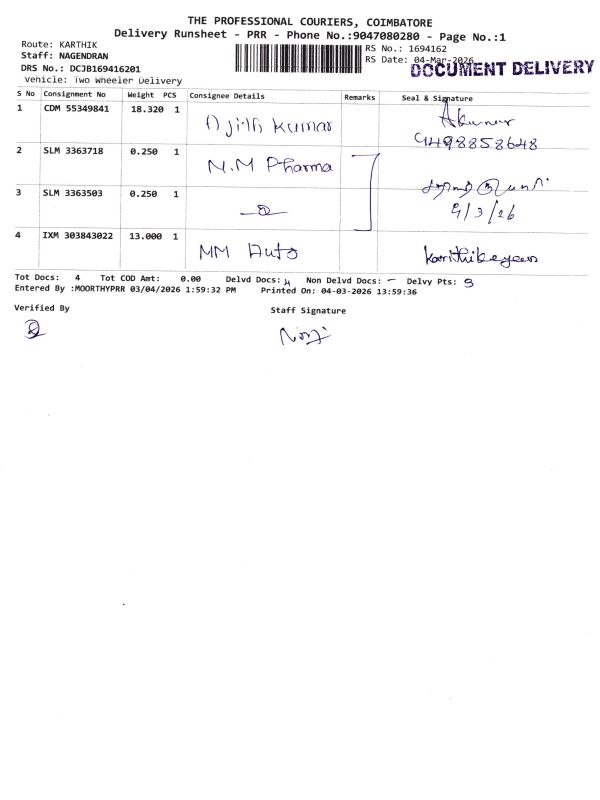 THE PROFESSIONAL COURIERS, COIMBATORE
Delivery Runsheet - PRR - Phone No.:9047080280 - Page No.:1
Route: KARTHIK
RS No.: 1694162
Staff: NAGENDRAN
RS Date: 04-Mar-2026
DOCUMENT DELIVERY
DRS No.: DCJB169416201
Vehicle: Two Wheeler Delivery
S No Consignment No Weight PCS Consignee Details Remarks Seal & Signature
1 CDM 55349841 18.320 1 Ajith Kumar
9498858648
2 SLM 3363718 0.250 1 N.M Pharma
3 SLM 3363503 0.250 1
9/3/26
4 IXM 303843022 13.000 1 MM Auto Karthikeyan
Tot Docs: 4 Tot COD Amt: 0.00 Delvd Docs: 4 Non Delvd Docs: - Delvy Pts: 3
Entered By :MOORTHYPRR 03/04/2026 1:59:32 PM Printed On: 04-03-2026 13:59:36
Verified By
Staff Signature